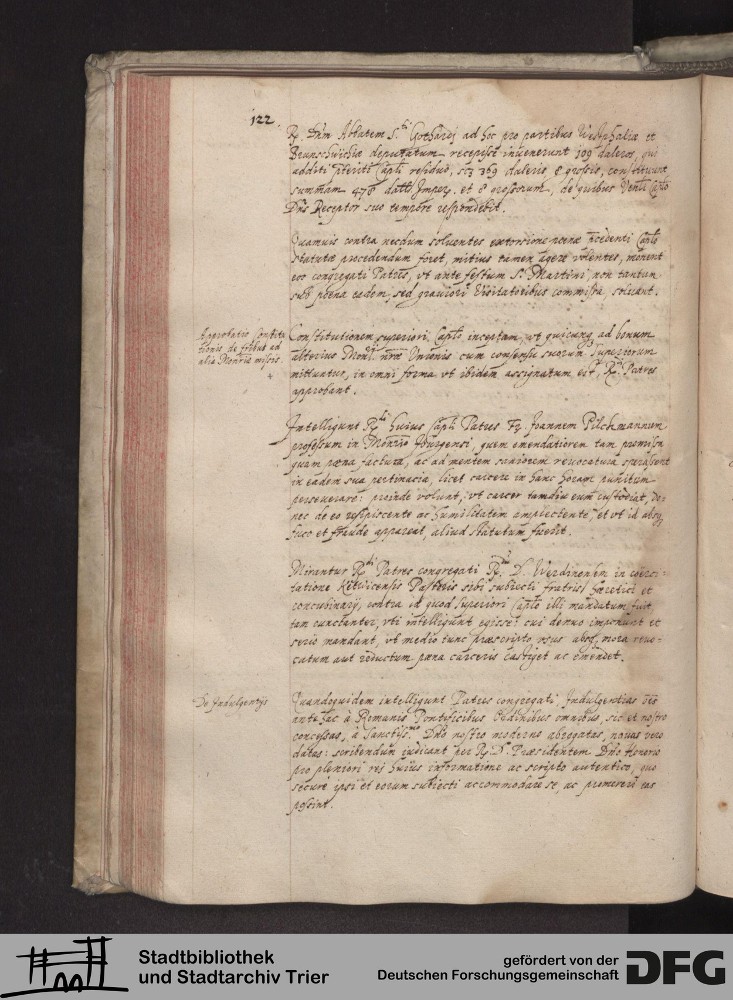 122
R. Dnm Abbatem S.ti Gothardi ad hoc pro partibus Westphaliæ et
Brunschwichiæ deputatum recepisse invenerunt 109 daleros, qui
additi p̄teriti Capli residuo, scz 369 daleris, 8 grossis, constituunt
summam 478 dall. Imper. et 8 grossorum, de quibus Venli Caplo
Dns Receptor suo tempore respondebit.
Quamuis contra necdum soluentes extorsione pœnæ p̄cedenti Caplo
statutæ procedendum foret, mitius tamen agere volentes, monent
eos congregati Patres, vt ante festum S.ti Martini, non tantum
sub poena eadem, sed grauiori Visitatoribus commissa, soluant.
Approbatio Constitu
tionis de fr̄ibus ad
alia Mon̄ria missis.
Constitutionem superiori Caplo inceptam, vt quicunq3 ad bonum
alterius Mon.rij nr̄æ Vnionis cum consensu suorum Superiorum
mittuntur, in omni forma vt ibidem assignatum est, R.di Patres
approbant.
Intelligunt R.di huius Capli Patres Fr. Joannem Pilchmannum
professum in Mon̄rio Iburgensi, quem emendatiorem tam promissa
quam pœna factura, ac ad mentem saniorem reuocatura sperassent
in eadem sua pertinacia, licet carcere in hanc horam punitum
perseuerare: proinde volunt, vt carcer tamdiu eum custodiat, do-
nec de eo resipiscente ac humilitatem amplectente, et vt id absq3
fuco et fraude appareat, aliud statutum fuerit.
Mirantur R.di Patres congregati R. D. Werdinensem in coerci-
tatione Ketwicensis Pastoris sibi subiecti fratris hæretici et
concubinarij, contra id quod superiori Caplo illi mandatum fuit
tam cunctanter, vti intelligunt egisse: cui denuo imponunt et
serio mandant, vt medio tunc præscripto vsus absq3 mora reuo-
catum aut reductum pœna carceris castiget ac emendet.
De Indulgentijs
Quandoquidem intelligunt Patres congregati Indulgentias oēs
ante hac à Romanis Pontificibus Ordinibus omnibus, sic et nostro
concessas, à Sanctiss.mo Dno nostro moderno abrogatas, nouas vero
datas: scribendum iudicant per R. D. Præsidentem Dno
pro pleniori rei huius informatione ac scripto autentico, quo
securè ipsi et eorum subiecti accommodare se, ac promereri eas
possint.
Stadtbibliothek
und Stadtarchiv Trier
gefördert von der
Deutschen Forschungsgemeinschaft
DFG